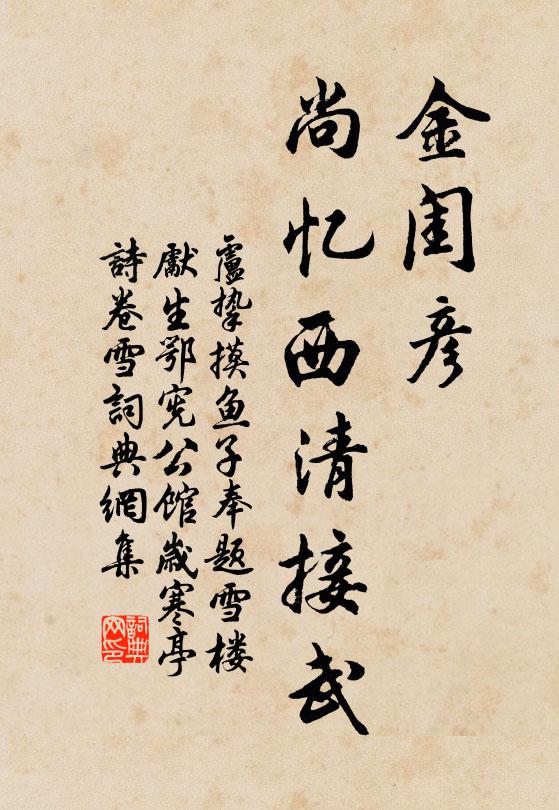 金闺彦
尚忆西清接武
盧摯摸鱼子奉题雪楼
獻生鄂宪公馆歲寒亭
詩卷雪詞典網集
詞典网印